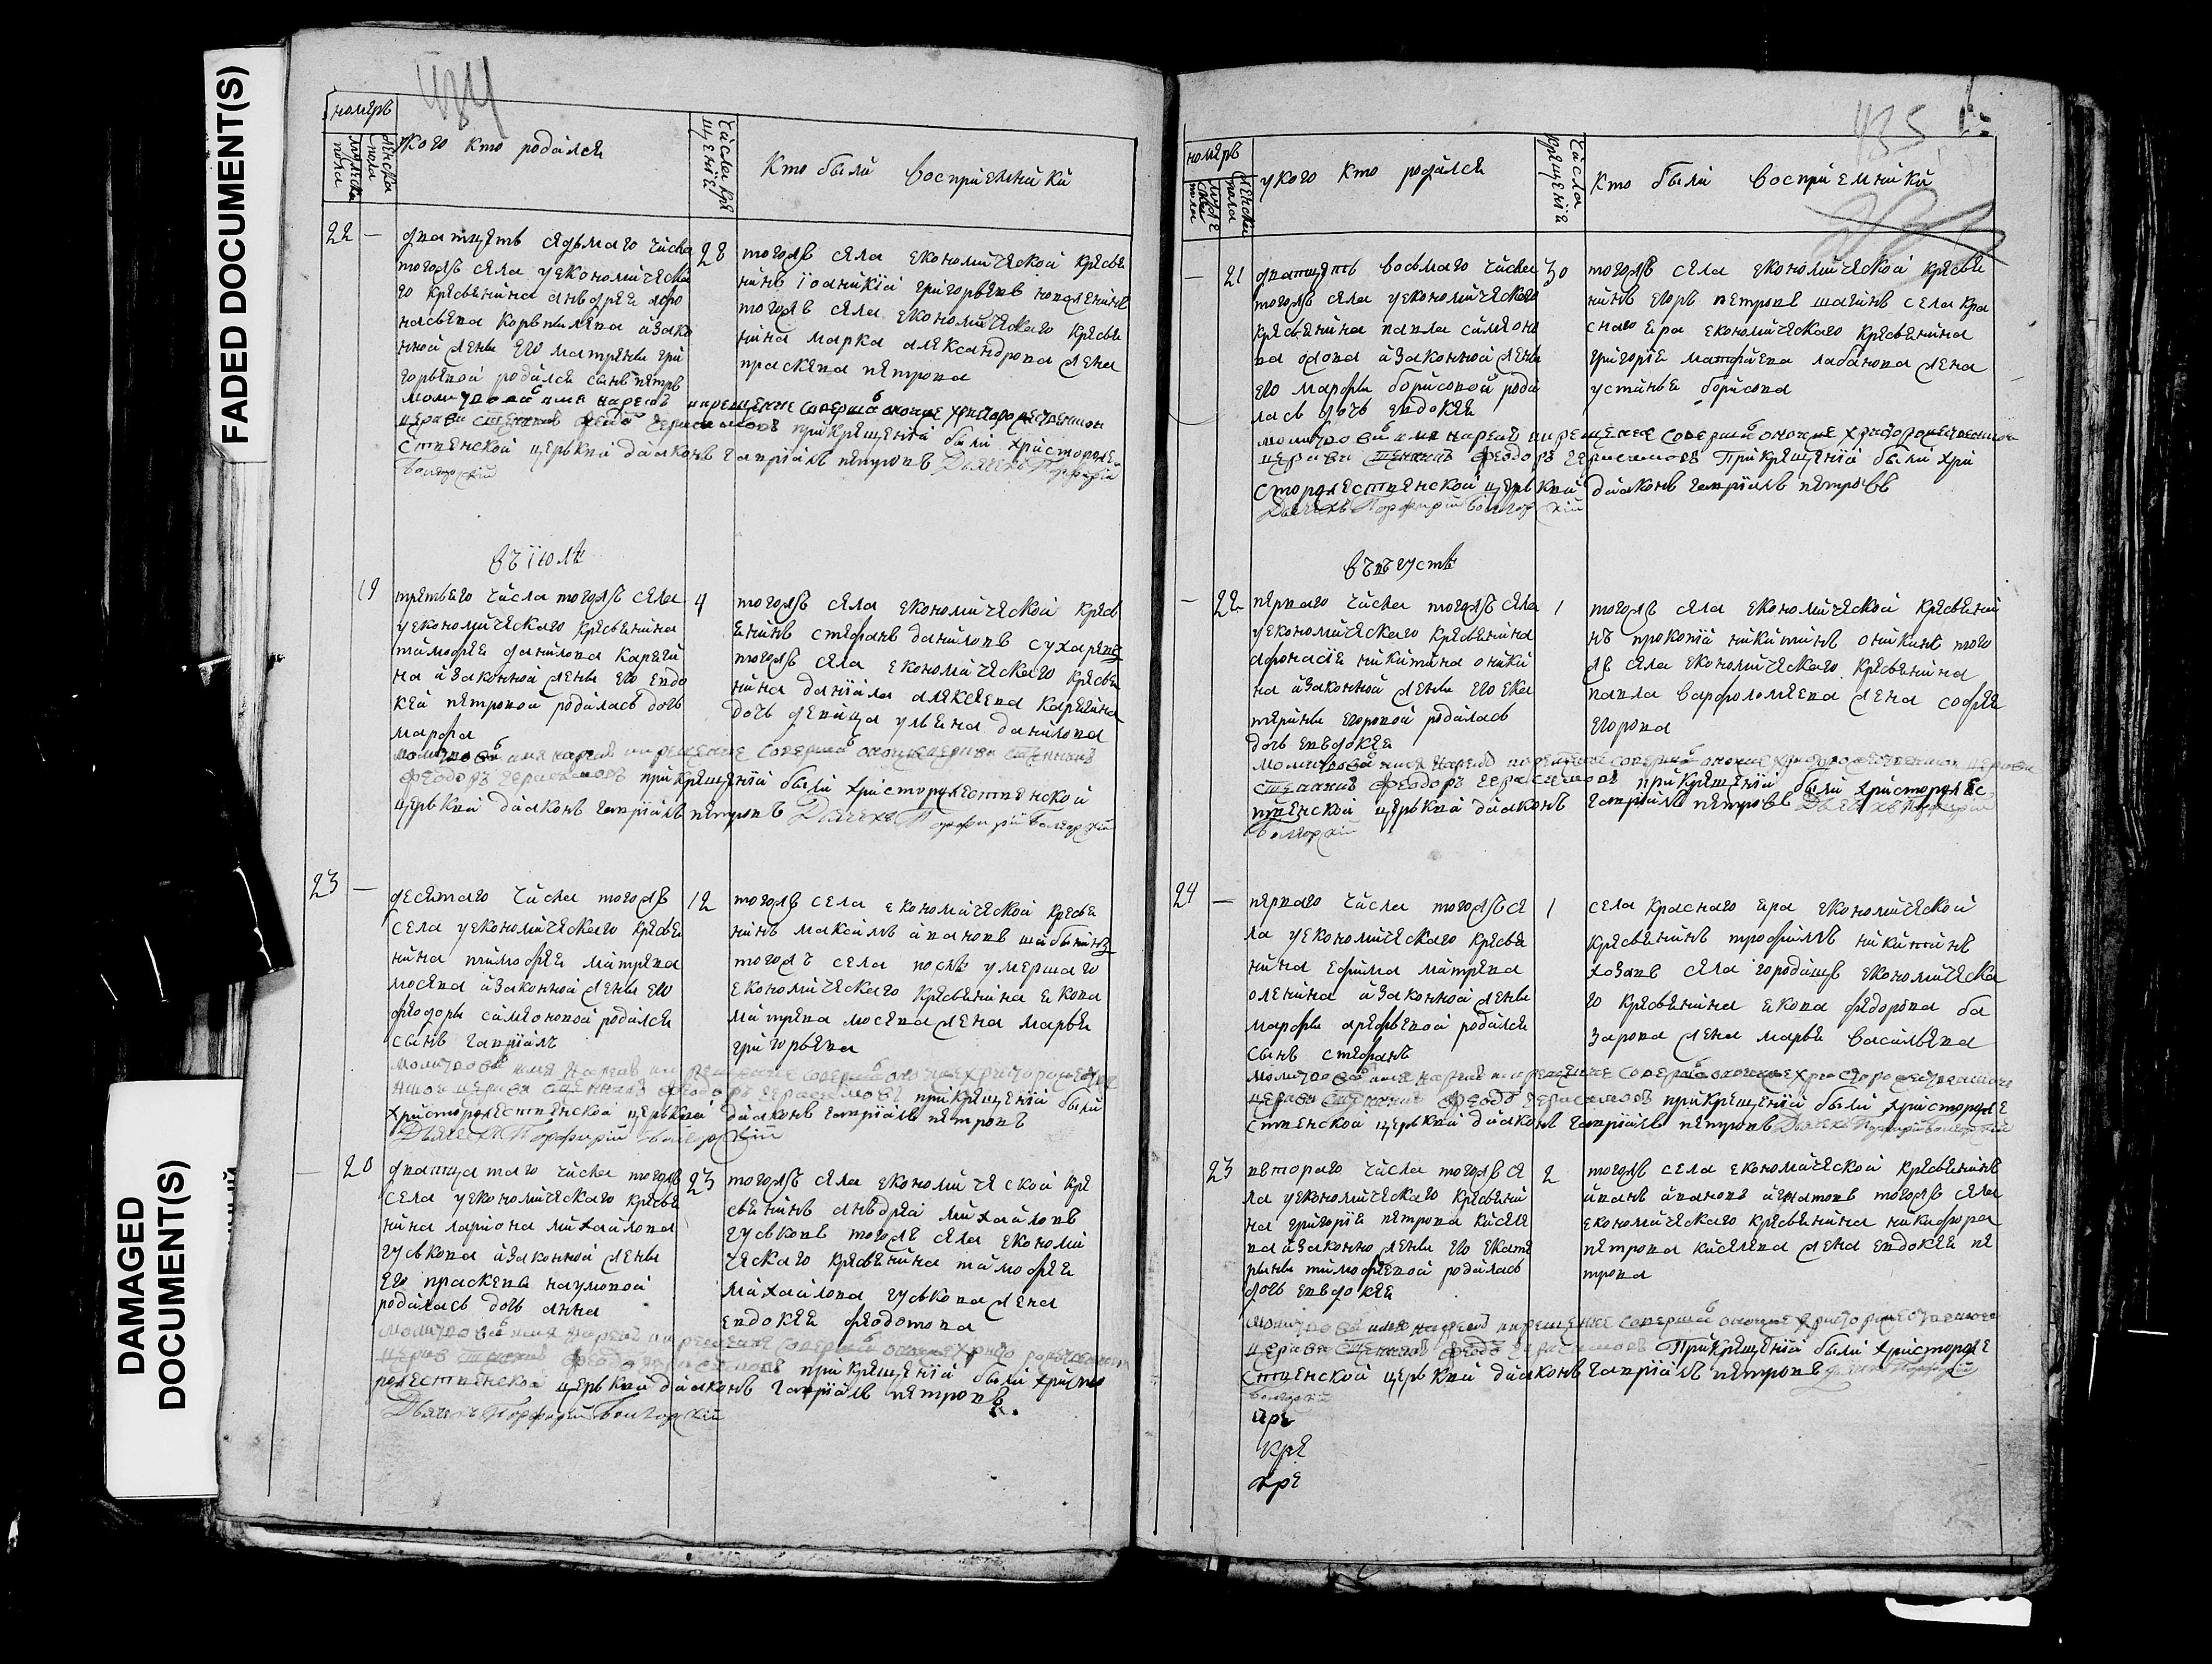 FADED DOCUMENT(S)
DAMAGED
DOCUMENT(S)
434
номеръ
мужеска пола
женска пола
укого кто родился
Числа крещенiе
Кто были восприемники
22 —
дватцеть седьмаго числа
тогожъ села уекономическа
го кресьянина анъдрея афо
насьева Коръпылева изако
нной жены его матрены гри
горьевой родился сынъ петръ
28
тогожъ села економической кресья
нинъ iоаникiй григорьевъ
тогожъ села економическаго кресья
нина марка александрова жена
праскева петрова
молитвовалъ имя нарекъ икрещенiе совершилъ оноиже христорождественской
церкви сщенникъ федоръ герасимовъ прикрещенiи были христорожде
ственской церькви дiаконъ гаврiилъ петровъ Дьячекъ Порфирiй
въ iюлѣ
19
третьего числа тогожъ села
уекономическаго кресьянина
тимофея данилова Карягй
на изаконной жены его евдо
кей петровой родилась дочь
марфа
4
тогожъ села економической кресь
янинъ стефанъ даниловъ сухаревъ
тогожъ села економическаго кресья
нина данiила алексеева Карягина
дочь девица ульяна данилова
молитвовалъ имя нарекъ икрещенiе совершилъ оноиже церкви сщенникъ
феодоръ герасимовъ прикрещенiи были христорождественской
церькви дiаконъ гаврiилъ петровъ Дьячекъ Порфирiй
23 —
десятаго числа тогожъ
села уекономическаго кресья
нина тимофея митрева
мосева изаконной жены его
феодоры симеоновой родился
сынъ гаврiилъ
12
тогожъ села економической кресья
нинъ максимъ ивановъ шибынинъ
тогожъ села послѣ умершаго
економическаго кресьянина якова
митрева мосева жена марья
григорьева
молитвовалъ имя нарекъ икрещенiе совершилъ оноиже христорождестве
нной церкви сщенникъ феодоръ герасимовъ прикрещенiи были
христорождественской церькви дiаконъ гаврiилъ петровъ
Дьячекъ Порфирiй
— 20
дватцатаго числа тогожъ
села уекономическаго кресья
нина лариона михайлова
гуськова изаконной жены
его праскевы наумовой
родилась дочь анна
23
тогожъ села економической кре
сьянинъ анъдрей михайловъ
гуськовъ тогожъ села економи
ческаго кресьянина тимофея
михайлова гуськова жена
евдокея феодотова
молитвовалъ имя нарекъ икрещенiе совершилъ оноиже христорождественской
церкви сщенникъ феодоръ герасимовъ прикрещенiи были христо
рождественской церькви дiаконъ гаврiилъ петровъ
Дьячекъ Порфирiй
435
номеръ
мужеска пола
женска пола
укого кто родился
Числа крещенiя
Кто были восприемники
— 21
дватцеть восьмаго числа
тогожъ села уекономическаго
кресьянина павла симеоно
ва одова изаконной жены
его марфы борисовой роди
лась дочь евдокея
30
тогожъ села економической кресья
нинъ егоръ петровъ шагинъ села кра
снаго яра економическаго кресьянина
григорiя матфеева лабанова жена
устинья борисова
молитвовалъ имя нарекъ икрещенiе совершилъ оноиже христорождественской
церкви сщенникъ феодоръ герасимовъ Прикрещенiи были хри
сторождественской церькви дiаконъ гаврiилъ петровъ
Дьячекъ Порфирiй
въ августѣ
— 22
перваго числа тогожъ села
уекономическаго кресьянина
афонасiя никитина оники
на изаконной жены его ека
терины егоровой родилась
дочь евъдокея
1
тогожъ села економической кресьяни
нъ прокопiй никитинъ оникинъ того
жъ села економическаго кресьянина
павла варфоломеева жена софья
егорова
молитвовалъ имя нарекъ икрещенiе совершилъ оноиже христорождественской церкви
сщенникъ феодоръ герасимовъ прикрещенiи были христорождес
твенской церькви дiаконъ гаврiилъ петровъ Дьячекъ Порфирiй
24 —
перваго числа тогожъ се
ла уекономическаго кресья
нина ефима митрева
оленина изаконной жены
марфы арефьевой родился
сынъ стефанъ
1
села краснаго яра економической
кресьянинъ трофимъ никитинъ
хозовъ села городищъ економическа
го кресьянина якова федорова ба
зарова жена марья васильева
молитвовалъ имя нарекъ икрещенiе совершилъ оноиже христорождественской
церкви сщенникъ феодоръ герасимовъ прикрещенiи были христорожде
ственской церькви дiаконъ гаврiилъ петровъ Дьячекъ Порфирiй
23
втораго числа тогожъ се
ла уекономическаго кресьяни
на григорiя петрова киселе
ва изаконно жены его екате
рины тимофеевой родилась
дочь евъдокея
2
тогожъ села економической кресьянинъ
иванъ ивановъ игнатовъ тогожъ села
економическаго кресьянина никифора
петрова киселева жена евдокея пе
трова
молитвовалъ имя нарекъ икрещенiе совершилъ оноиже христорождественской
церкви сщенникъ феодоръ герасимовъ Прикрещенiи были христорожде
ственской церькви дiаконъ гаврiилъ петровъ Дьячекъ Порфирiй
кре